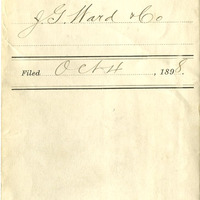 J. G. Ward & Co
Filed Oct 4, 1898.